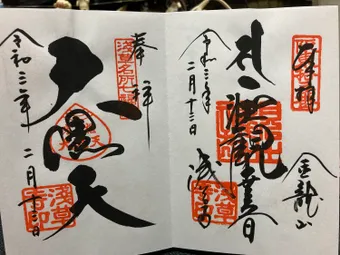 奉拝
金龍山
令和三年
二月十三日
浅草寺
浅草寺印
奉拝
浅草名所七福神
大黒天
令和三年
二月十三日
浅草寺印